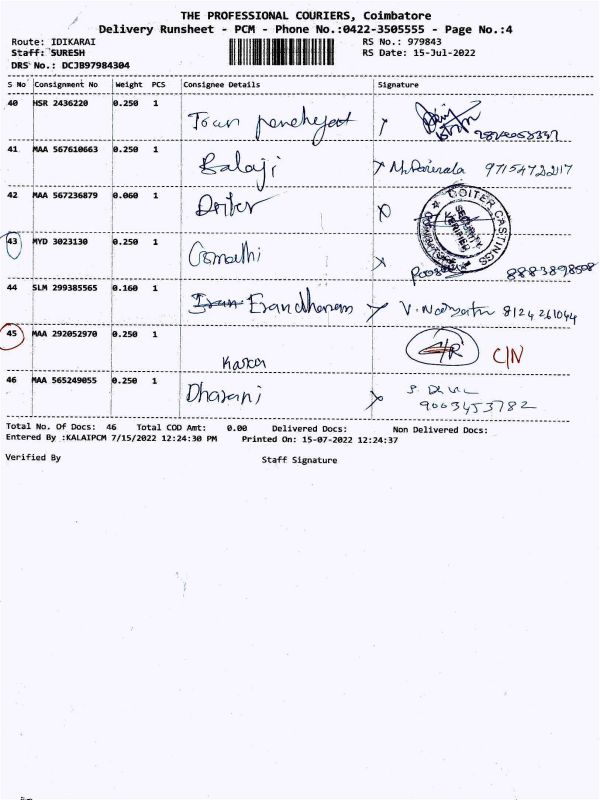 THE PROFESSIONAL COURIERS, Coimbatore
Delivery Runsheet - PCM - Phone No.:0422-3505555 - Page No.:4
Route: IDIKARAI RS No.: 979843
Staff: SURESH RS Date: 15-Jul-2022
DRS No.: DCJB97984304
S No Consignment No Weight PCS Consignee Details Signature
40 HSR 2436220 0.250 1
41 MAA 567610663 0.250 1 Balaji 9715472217
42 MAA 567236879 0.060 1 Doiter
DOITER CASTINGS
SECURITY
VERIFIED
43 MYD 3023130 0.250 1 Gomathi 8883898508
44 SLM 299385565 0.160 1 Erandhanam 8124261044
45 MAA 292052970 0.250 1 C/N
46 MAA 565249055 0.250 1 Dharani 9003453782
Total No. Of Docs: 46 Total COD Amt: 0.00 Delivered Docs: Non Delivered Docs:
Entered By :KALAIPCM 7/15/2022 12:24:30 PM Printed On: 15-07-2022 12:24:37
Verified By Staff Signature